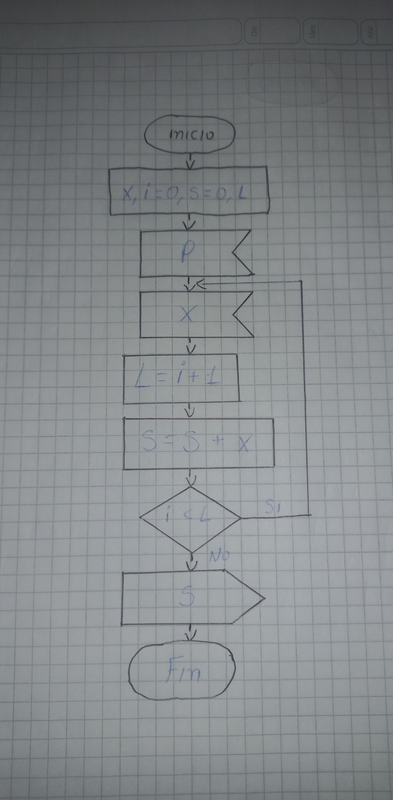 inicio
X, i=0, S=0, L
P
X
L = i+1
S = S + X
i < L
Si
No
S
Fin